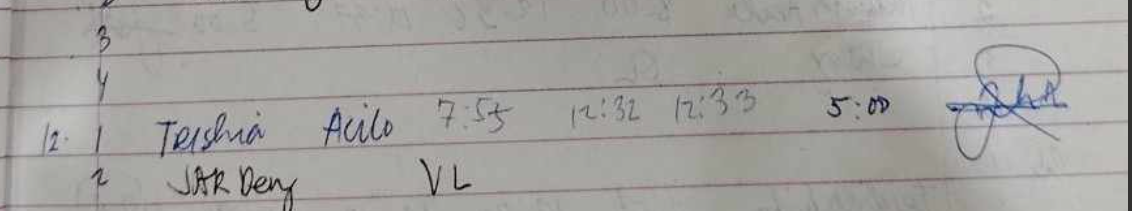 3
4
12. 1 Teishia Acilo 7:55 12:32 12:33 5:00
2 JAR Deny VL